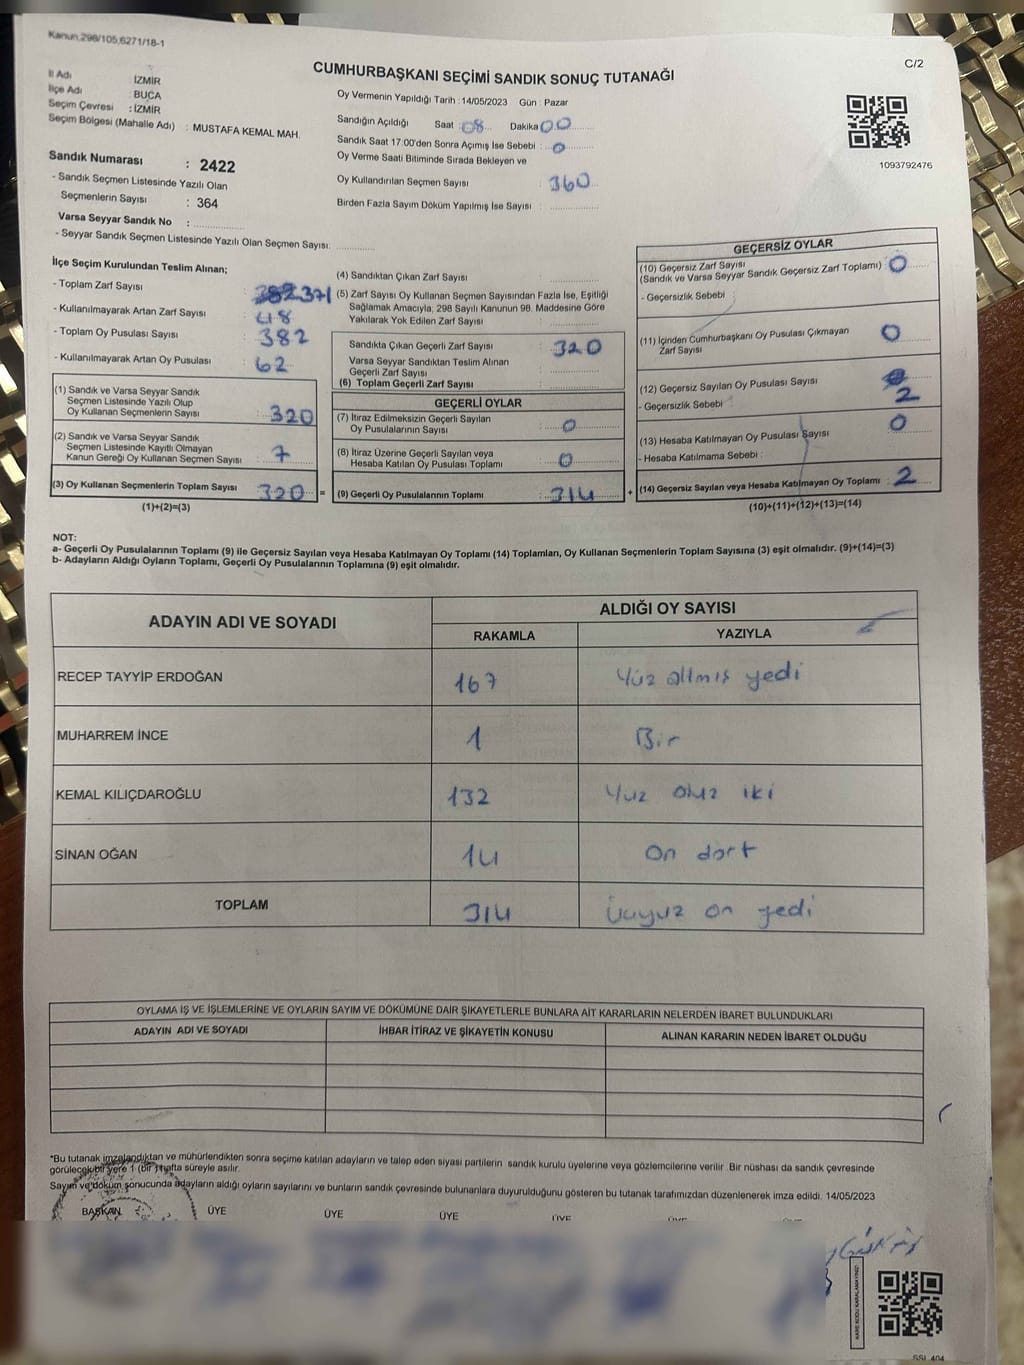 Kanun.298/105,6271/18-1
C/2
CUMHURBAŞKANI SEÇİMİ SANDIK SONUÇ TUTANAĞI
İl Adı İZMİR
İlçe Adı BUCA
Seçim Çevresi : İZMİR
Seçim Bölgesi (Mahalle Adı) : MUSTAFA KEMAL MAH.
Sandık Numarası : 2422
- Sandık Seçmen Listesinde Yazılı Olan
Seçmenlerin Sayısı : 364
Varsa Seyyar Sandık No :
- Seyyar Sandık Seçmen Listesinde Yazılı Olan Seçmen Sayısı:
Oy Vermenin Yapıldığı Tarih : 14/05/2023 Gün : Pazar
Sandığın Açıldığı Saat : 08 Dakika 00
Sandık Saat 17:00'den Sonra Açımış İse Sebebi : 0
Oy Verme Saati Bitiminde Sırada Bekleyen ve
Oy Kullandırılan Seçmen Sayısı : 360
Birden Fazla Sayım Döküm Yapılmış İse Sayısı :
1093792476
İlçe Seçim Kurulundan Teslim Alınan;
- Toplam Zarf Sayısı 371
- Kullanılmayarak Artan Zarf Sayısı 48
- Toplam Oy Pusulası Sayısı 382
- Kullanılmayarak Artan Oy Pusulası 62
(1) Sandık ve Varsa Seyyar Sandık
Seçmen Listesinde Yazılı Olup
Oy Kullanan Seçmenlerin Sayısı : 320
(2) Sandık ve Varsa Seyyar Sandık
Seçmen Listesinde Kayıtlı Olmayan
Kanun Gereği Oy Kullanan Seçmen Sayısı : 7
(3) Oy Kullanan Seçmenlerin Toplam Sayısı : 320 =
(1)+(2)=(3)
(4) Sandıktan Çıkan Zarf Sayısı
(5) Zarf Sayısı Oy Kullanan Seçmen Sayısından Fazla İse, Eşitliği
Sağlamak Amacıyla; 298 Sayılı Kanunun 98. Maddesine Göre
Yakılarak Yok Edilen Zarf Sayısı :
Sandıkta Çıkan Geçerli Zarf Sayısı : 320
Varsa Seyyar Sandıktan Teslim Alınan
Geçerli Zarf Sayısı
(6) Toplam Geçerli Zarf Sayısı
GEÇERLİ OYLAR
(7) İtiraz Edilmeksizin Geçerli Sayılan
Oy Pusulalarının Sayısı : 0
(8) İtiraz Üzerine Geçerli Sayılan veya
Hesaba Katılan Oy Pusulası Toplamı : 0
(9) Geçerli Oy Pusulalarının Toplamı : 314 +
GEÇERSİZ OYLAR
(10) Geçersiz Zarf Sayısı
(Sandık ve Varsa Seyyar Sandık Geçersiz Zarf Toplamı) : 0
- Geçersizlik Sebebi :
(11) İçinden Cumhurbaşkanı Oy Pusulası Çıkmayan
Zarf Sayısı 0
(12) Geçersiz Sayılan Oy Pusulası Sayısı 2
- Geçersizlik Sebebi :
(13) Hesaba Katılmayan Oy Pusulası Sayısı 0
- Hesaba Katılmama Sebebi :
(14) Geçersiz Sayılan veya Hesaba Katılmayan Oy Toplamı : 2
(10)+(11)+(12)+(13)=(14)
NOT:
a- Geçerli Oy Pusulalarının Toplamı (9) ile Geçersiz Sayılan veya Hesaba Katılmayan Oy Toplamı (14) Toplamları, Oy Kullanan Seçmenlerin Toplam Sayısına (3) eşit olmalıdır. (9)+(14)=(3)
b- Adayların Aldığı Oyların Toplamı, Geçerli Oy Pusulalarının Toplamına (9) eşit olmalıdır.
ADAYIN ADI VE SOYADI ALDIĞI OY SAYISI
RAKAMLA YAZIYLA
RECEP TAYYİP ERDOĞAN 167 Yüz altmış yedi
MUHARREM İNCE 1 Bir
KEMAL KILIÇDAROĞLU 132 Yuz otuz iki
SİNAN OĞAN 14 On dört
TOPLAM 314 Üçyuz on yedi
OYLAMA İŞ VE İŞLEMLERİNE VE OYLARIN SAYIM VE DÖKÜMÜNE DAİR ŞİKAYETLERLE BUNLARA AİT KARARLARIN NELERDEN İBARET BULUNDUKLARI
ADAYIN ADI VE SOYADI İHBAR İTİRAZ VE ŞİKAYETİN KONUSU ALINAN KARARIN NEDEN İBARET OLDUĞU
*Bu tutanak imzalandıktan ve mühürlendikten sonra seçime katılan adayların ve talep eden siyasi partilerin sandık kurulu üyelerine veya gözlemcilerine verilir. Bir nüshası da sandık çevresinde
görülecek bir yere 1 (bir) hafta süreyle asılır.
Sayım ve döküm sonucunda adayların aldığı oyların sayılarını ve bunların sandık çevresinde bulunanlara duyurulduğunu gösteren bu tutanak tarafımızdan düzenlenerek imza edildi. 14/05/2023
BAŞKAN ÜYE ÜYE ÜYE ÜYE ÜYE
KARE KODU KARALAMAYINIZ!